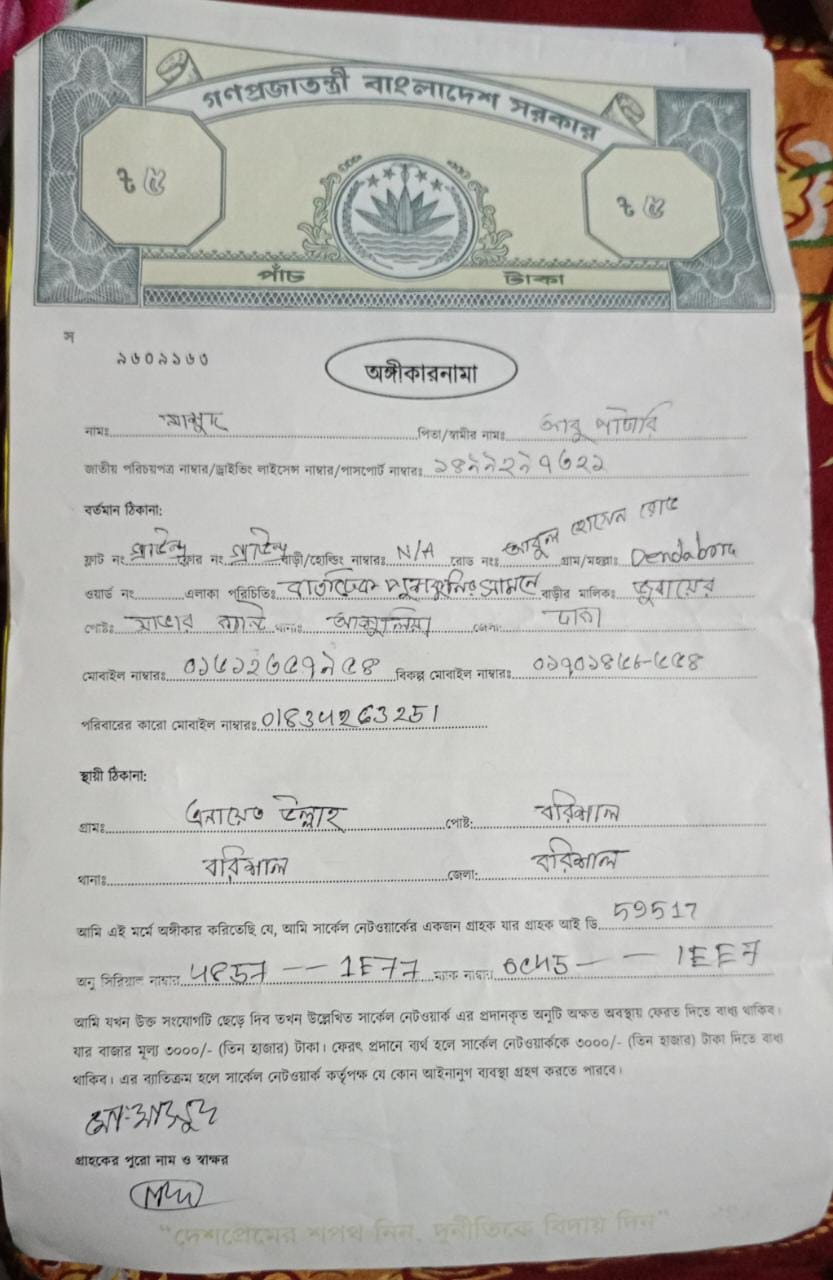 গণপ্রজাতন্ত্রী বাংলাদেশ সরকার
৳ ৫
৳ ৫
পাঁচ টাকা
স
৯৬০৯১৬৩
অঙ্গীকারনামা
নামঃ মাসুদ পিতা/স্বামীর নামঃ আবু পাটারি
জাতীয় পরিচয়পত্র নাম্বার/ড্রাইভিং লাইসেন্স নাম্বার/পাসপোর্ট নাম্বারঃ ১৪৯৯২৯৭৬২১
বর্তমান ঠিকানা:
ফ্লাট নং ফ্লোর নং বাড়ী/হোল্ডিং নাম্বারঃ N/A রোড নংঃ আবুল হোসেন রোড গ্রাম/মহল্লাঃ Dendabora
ওয়ার্ড নং এলাকা পরিচিতিঃ সামনে বাড়ীর মালিকঃ জুবায়ের
পোষ্টঃ সাভার ক্যান্ট থানাঃ আশুলিয়া জেলা: ঢাকা
মোবাইল নাম্বারঃ ০১৫১২৬৫৭৯৫৪ বিকল্প মোবাইল নাম্বারঃ
পরিবারের কারো মোবাইল নাম্বারঃ 01834263251
স্থায়ী ঠিকানা:
গ্রামঃ এনায়েত উল্লাহ পোষ্ট: বরিশাল
থানাঃ বরিশাল জেলা: বরিশাল
আমি এই মর্মে অঙ্গীকার করিতেছি যে, আমি সার্কেল নেটওয়ার্কের একজন গ্রাহক যার গ্রাহক আই ডি 59517
অনু সিরিয়াল নাম্বার 4857 -- 1E77 ম্যাক নাম্বার 0C45 - - 1EE7
আমি যখন উক্ত সংযোগটি ছেড়ে দিব তখন উল্লেখিত সার্কেল নেটওয়ার্ক এর প্রদানকৃত অনুটি অক্ষত অবস্থায় ফেরত দিতে বাধ্য থাকিব।
যার বাজার মূল্য ৩০০০/- (তিন হাজার) টাকা। ফেরৎ প্রদানে ব্যর্থ হলে সার্কেল নেটওয়ার্ককে ৩০০০/- (তিন হাজার) টাকা দিতে বাধ্য
থাকিব। এর ব্যতিক্রম হলে সার্কেল নেটওয়ার্ক কর্তৃপক্ষ যে কোন আইনানুগ ব্যবস্থা গ্রহণ করতে পারবে।
মোঃ মাসুদ
গ্রাহকের পুরো নাম ও স্বাক্ষর
"দেশপ্রেমের শপথ নিন, দুর্নীতিকে বিদায় দিন"